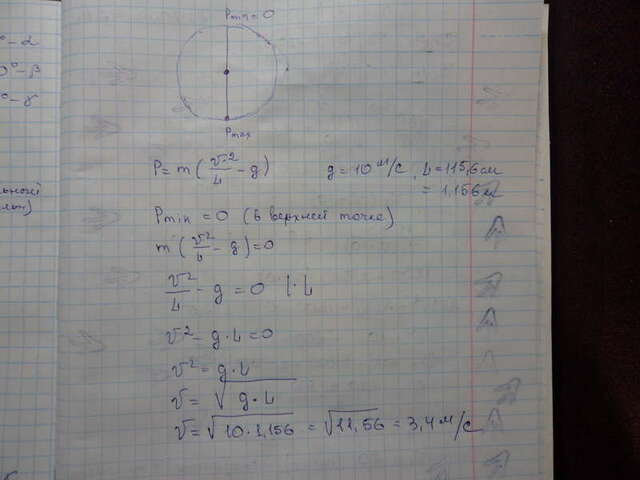 Pmin = 0
Pmax
P = m ( v²/L - g )
g = 10 м/с , L = 115,6 см
= 1,156 м
Pmin = 0 (в верхней точке)
m ( v²/L - g ) = 0
v²/L - g = 0 | · L
v² - g · L = 0
v² = g · L
v = √ g · L
v = √10 · 1,156 = √11,56 = 3,4 м/с
° - α
0° - β
° - γ